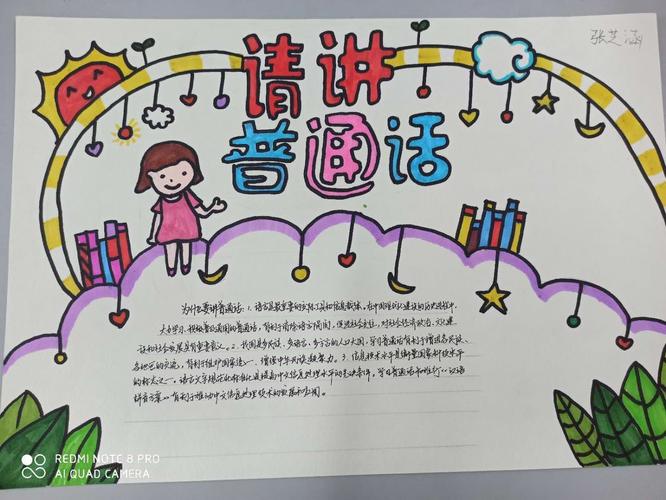 张芝涵
请讲
普通话
为什么要讲普通话：1、语言是最重要的交际工具和信息载体。在中国现代化建设的历史进程中，
大力学习、推广普及通用的普通话，有利于消除语言隔阂，促进社会交往，对社会经济政治、文化建
设和社会发展具有重要意义。2、我国是多民族、多语言、多方言的人口大国，学习普通话有利于增进各民族、
各地区的交流，有利于维护国家统一，增强中华民族凝聚力。3、信息技术水平是衡量国家科技水平
的标志之一。语言文字规范化标准化是提高中文信息处理水平的先决条件，学习普通话和推行《汉语
拼音方案》有利于推动中文信息处理技术的发展和应用。
REDMI NOTE 8 PRO
AI QUAD CAMERA